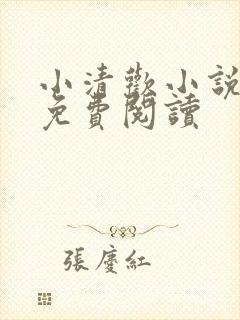 小清歡小說
免費閱讀
張慶紅